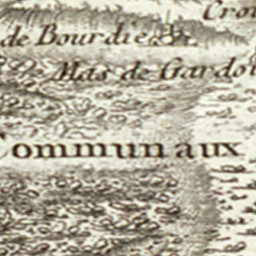 Crou
de Bourdie
Mas de Gardou
Communaux